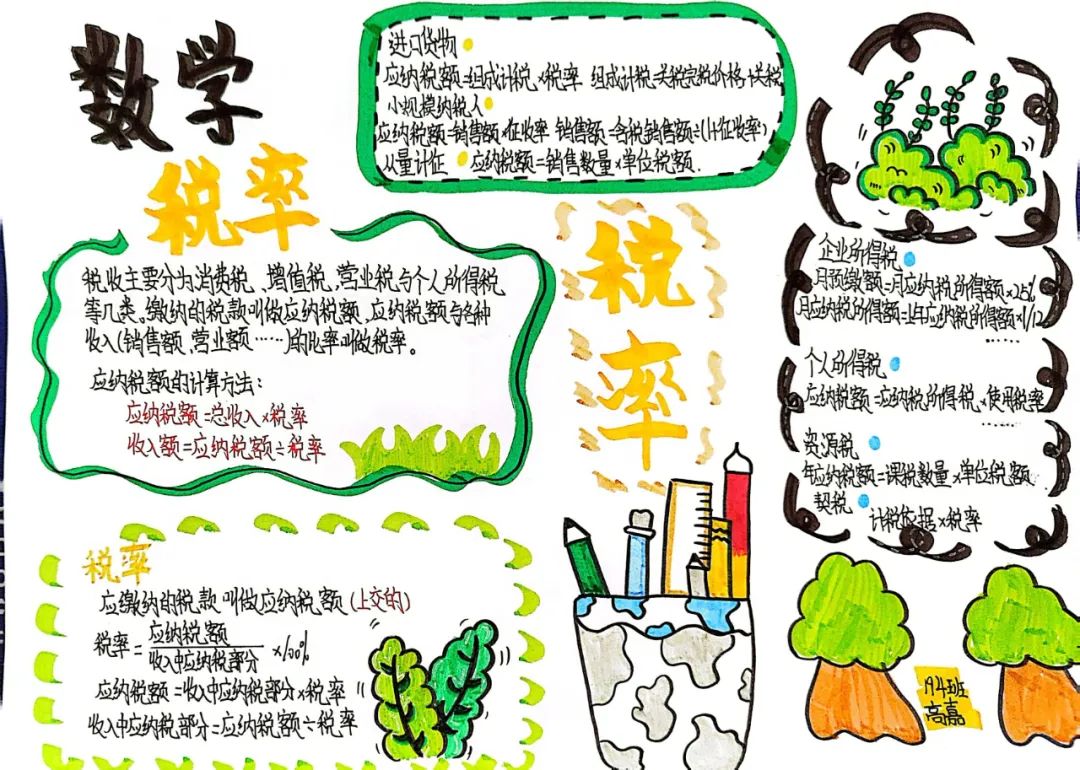 数学
税率
进口货物
应纳税额=组成计税×税率 组成计税=关税完税价格+关税
小规模纳税人
应纳税额=销售额×征收率 销售额=含税销售额÷(1+征收率)
从量计征 应纳税额=销售数量×单位税额.
税收主要分为消费税、增值税、营业税与个人所得税
等几类,缴纳的税款叫做应纳税额,应纳税额与各种
收入(销售额、营业额……)的比率叫做税率。
应纳税额的计算方法:
应纳税额=总收入×税率
收入额=应纳税额÷税率
税率
企业所得税
月预缴额=月应纳税所得额×25%
月应纳税所得额=上年应纳税所得额×1/12
......
个人所得税
应纳税额=应纳税所得税×使用税率
......
资源税
年应纳税额=课税数量×单位税额
契税
计税依据×税率
税率
应缴纳的税款叫做应纳税额(上交的)
税率=应纳税额/收入中应纳税部分×100%
应纳税额=收入中应纳税部分×税率
收入中应纳税部分=应纳税额÷税率
高嘉